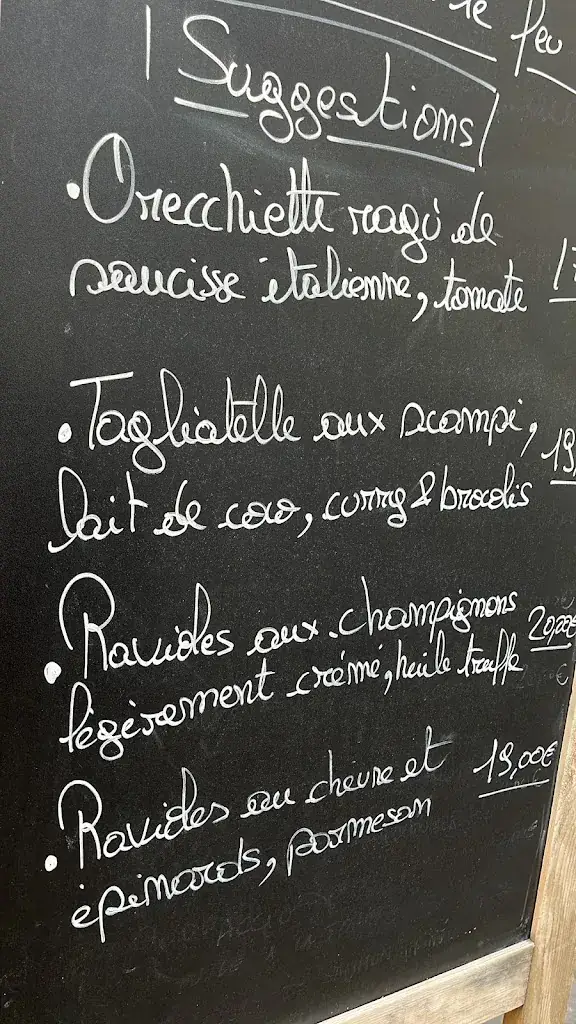 feu
Suggestions
• Orecchiette ragù de
saucisse italienne, tomate 17
• Tagliatelle aux scampi,
lait de coco, curry & brocolis 19,
• Ravioles aux champignons
légèrement crémé, huile truffe 20,00€
€
• Ravioles au chèvre et 19,00€
épinards, parmesan